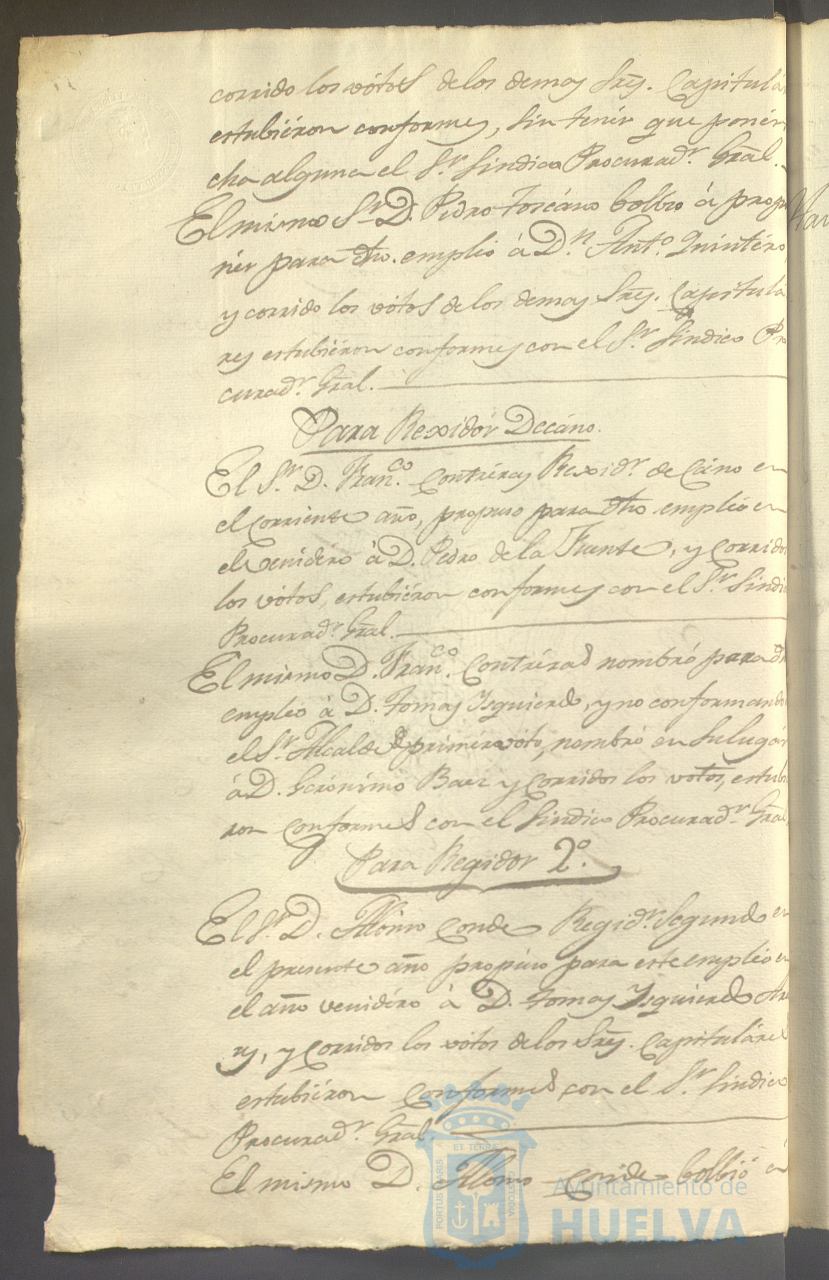 corrido los vótos de los demas Sres. Capitulá
estubiéron conformes, sin tenér que ponér
cha alguna el Sr. Sindico Procuradr. Gral.
El mismo Sr. D. Pedro Toscáno bolbió á propo
ner para dho. empléo á Dn. Anto. Quintéro
y corrido los vótos de los demas Sres. Capitulá
res estubiéron conformes con el Sr. Sindico Pro
curadr. Gral.
Para Rexidór Decáno.
El Sr. D. Franco. Contréras Rexidr. decáno en
el corriente año, propuso para dho empléo en
el venidéro á D. Pedro de la Fuente, y corrido
los vótos, estubiéron conformes con el Sr. Sindi
Procuradr. Gral.
El mismo D. Franco. Contréras nombró para dh
empléo á D. Tomas Ysquierdo, y no conformando
el Sr. Alcalde de primér vóto, nombró en su lugár
á D. Gerónimo Baez y corridos los votos, estubi
ron conformes con el Sindico Procuradr. Gral
Para Regidor 2º.
El Sr. D. Alónso Conde Regidr. Segundo en
el presente año propúso para este empléo en
el año venidéro á D. Tomas Ysquierdo
y corridos los vótos de los Sres. Capituláres
estubiéron conformes con el Sr. Sindico
Procuradr. Gral.
El mismo D. Alonso Conde bolbió á
Ayuntamiento de
HUELVA